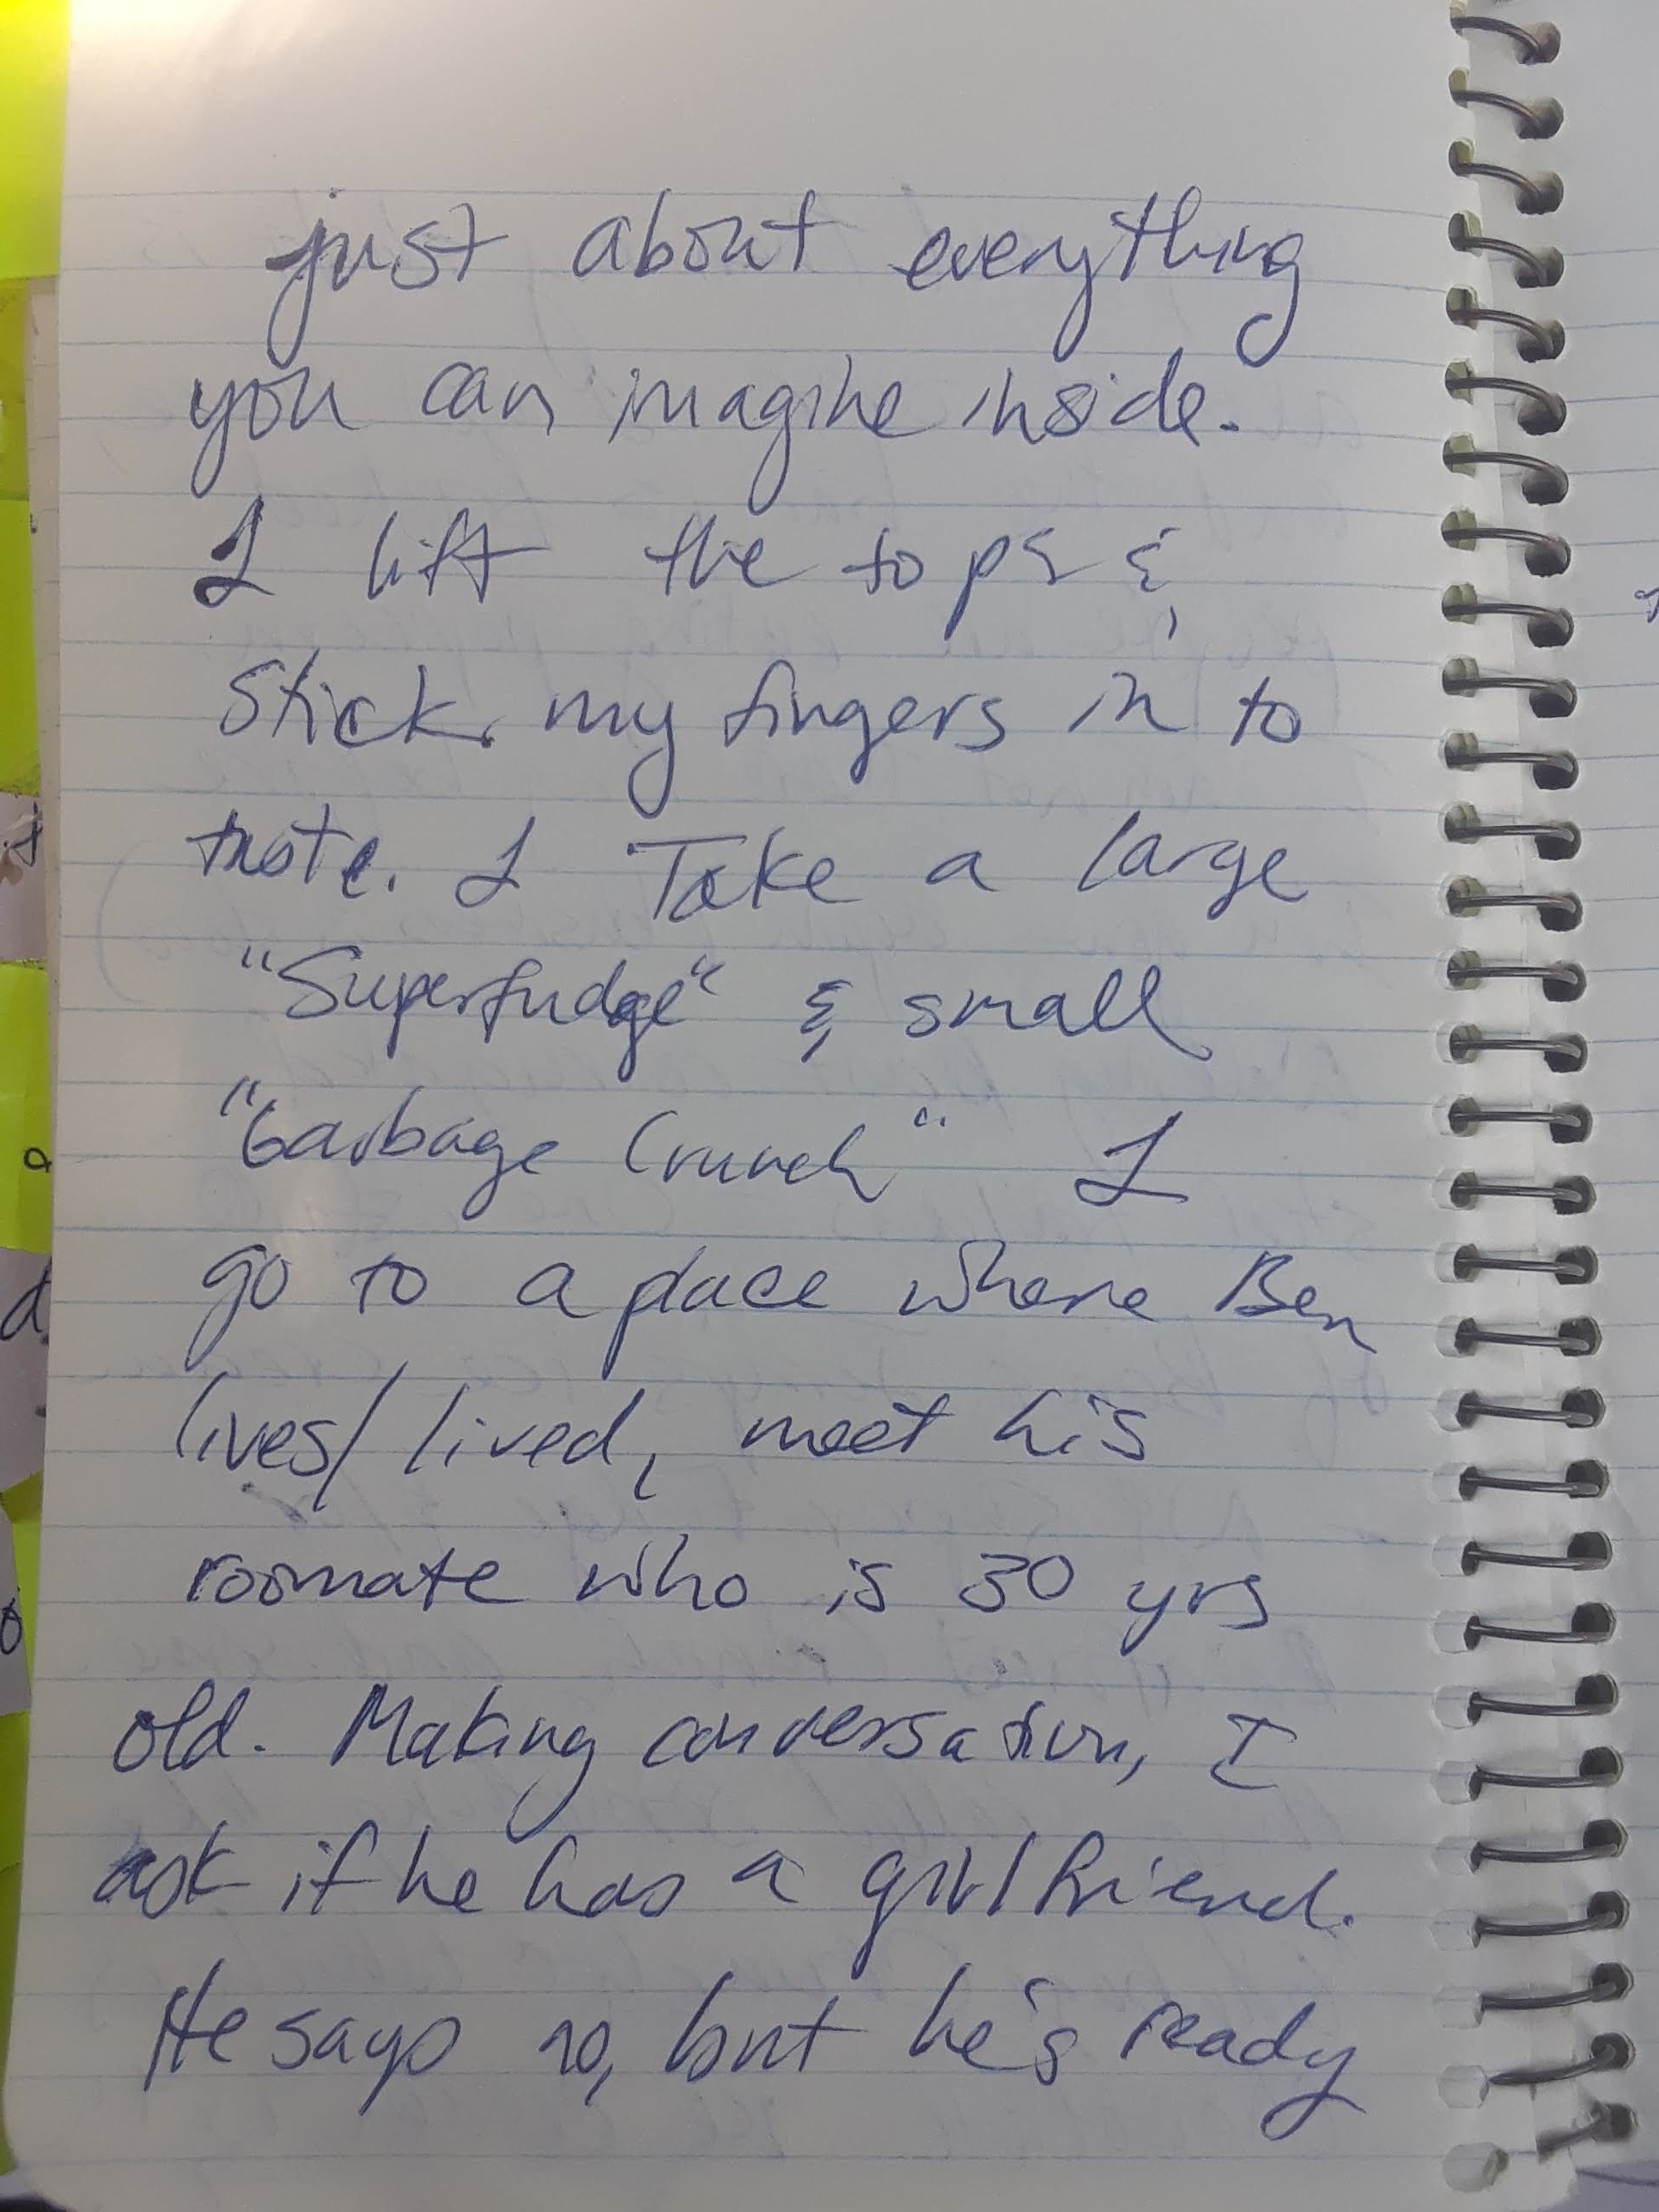 just about everything
you can imagine inside.
I lift the tops &
stick my fingers in to
taste. I Take a large
"Superfudge" & small
"Garbage Crunch" I
go to a place where Ben
lives/lived, meet his
roomate who is 30 yrs
old. Making conversation, I
ask if he has a girlfriend.
He says no, but he's ready